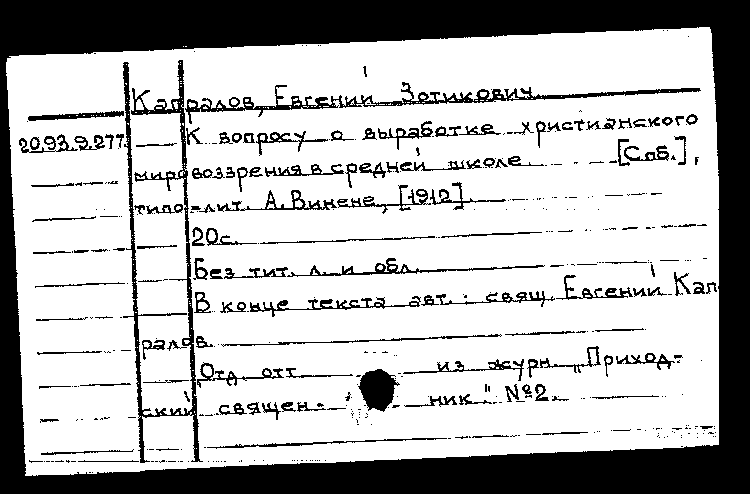 Капралов, Евгений Зотикович.
20.93.9.277. К вопросу о выработке христианского
мировоззрения в средней школе. [Спб.],
типо-лит. А. Винеке, [1912].
20с.
Без тит. л. и обл.
В конце текста авт.: свящ. Евгений Кап-
ралов.
Отд. отт из журн. „Приход-
ский священ- ник." №2.